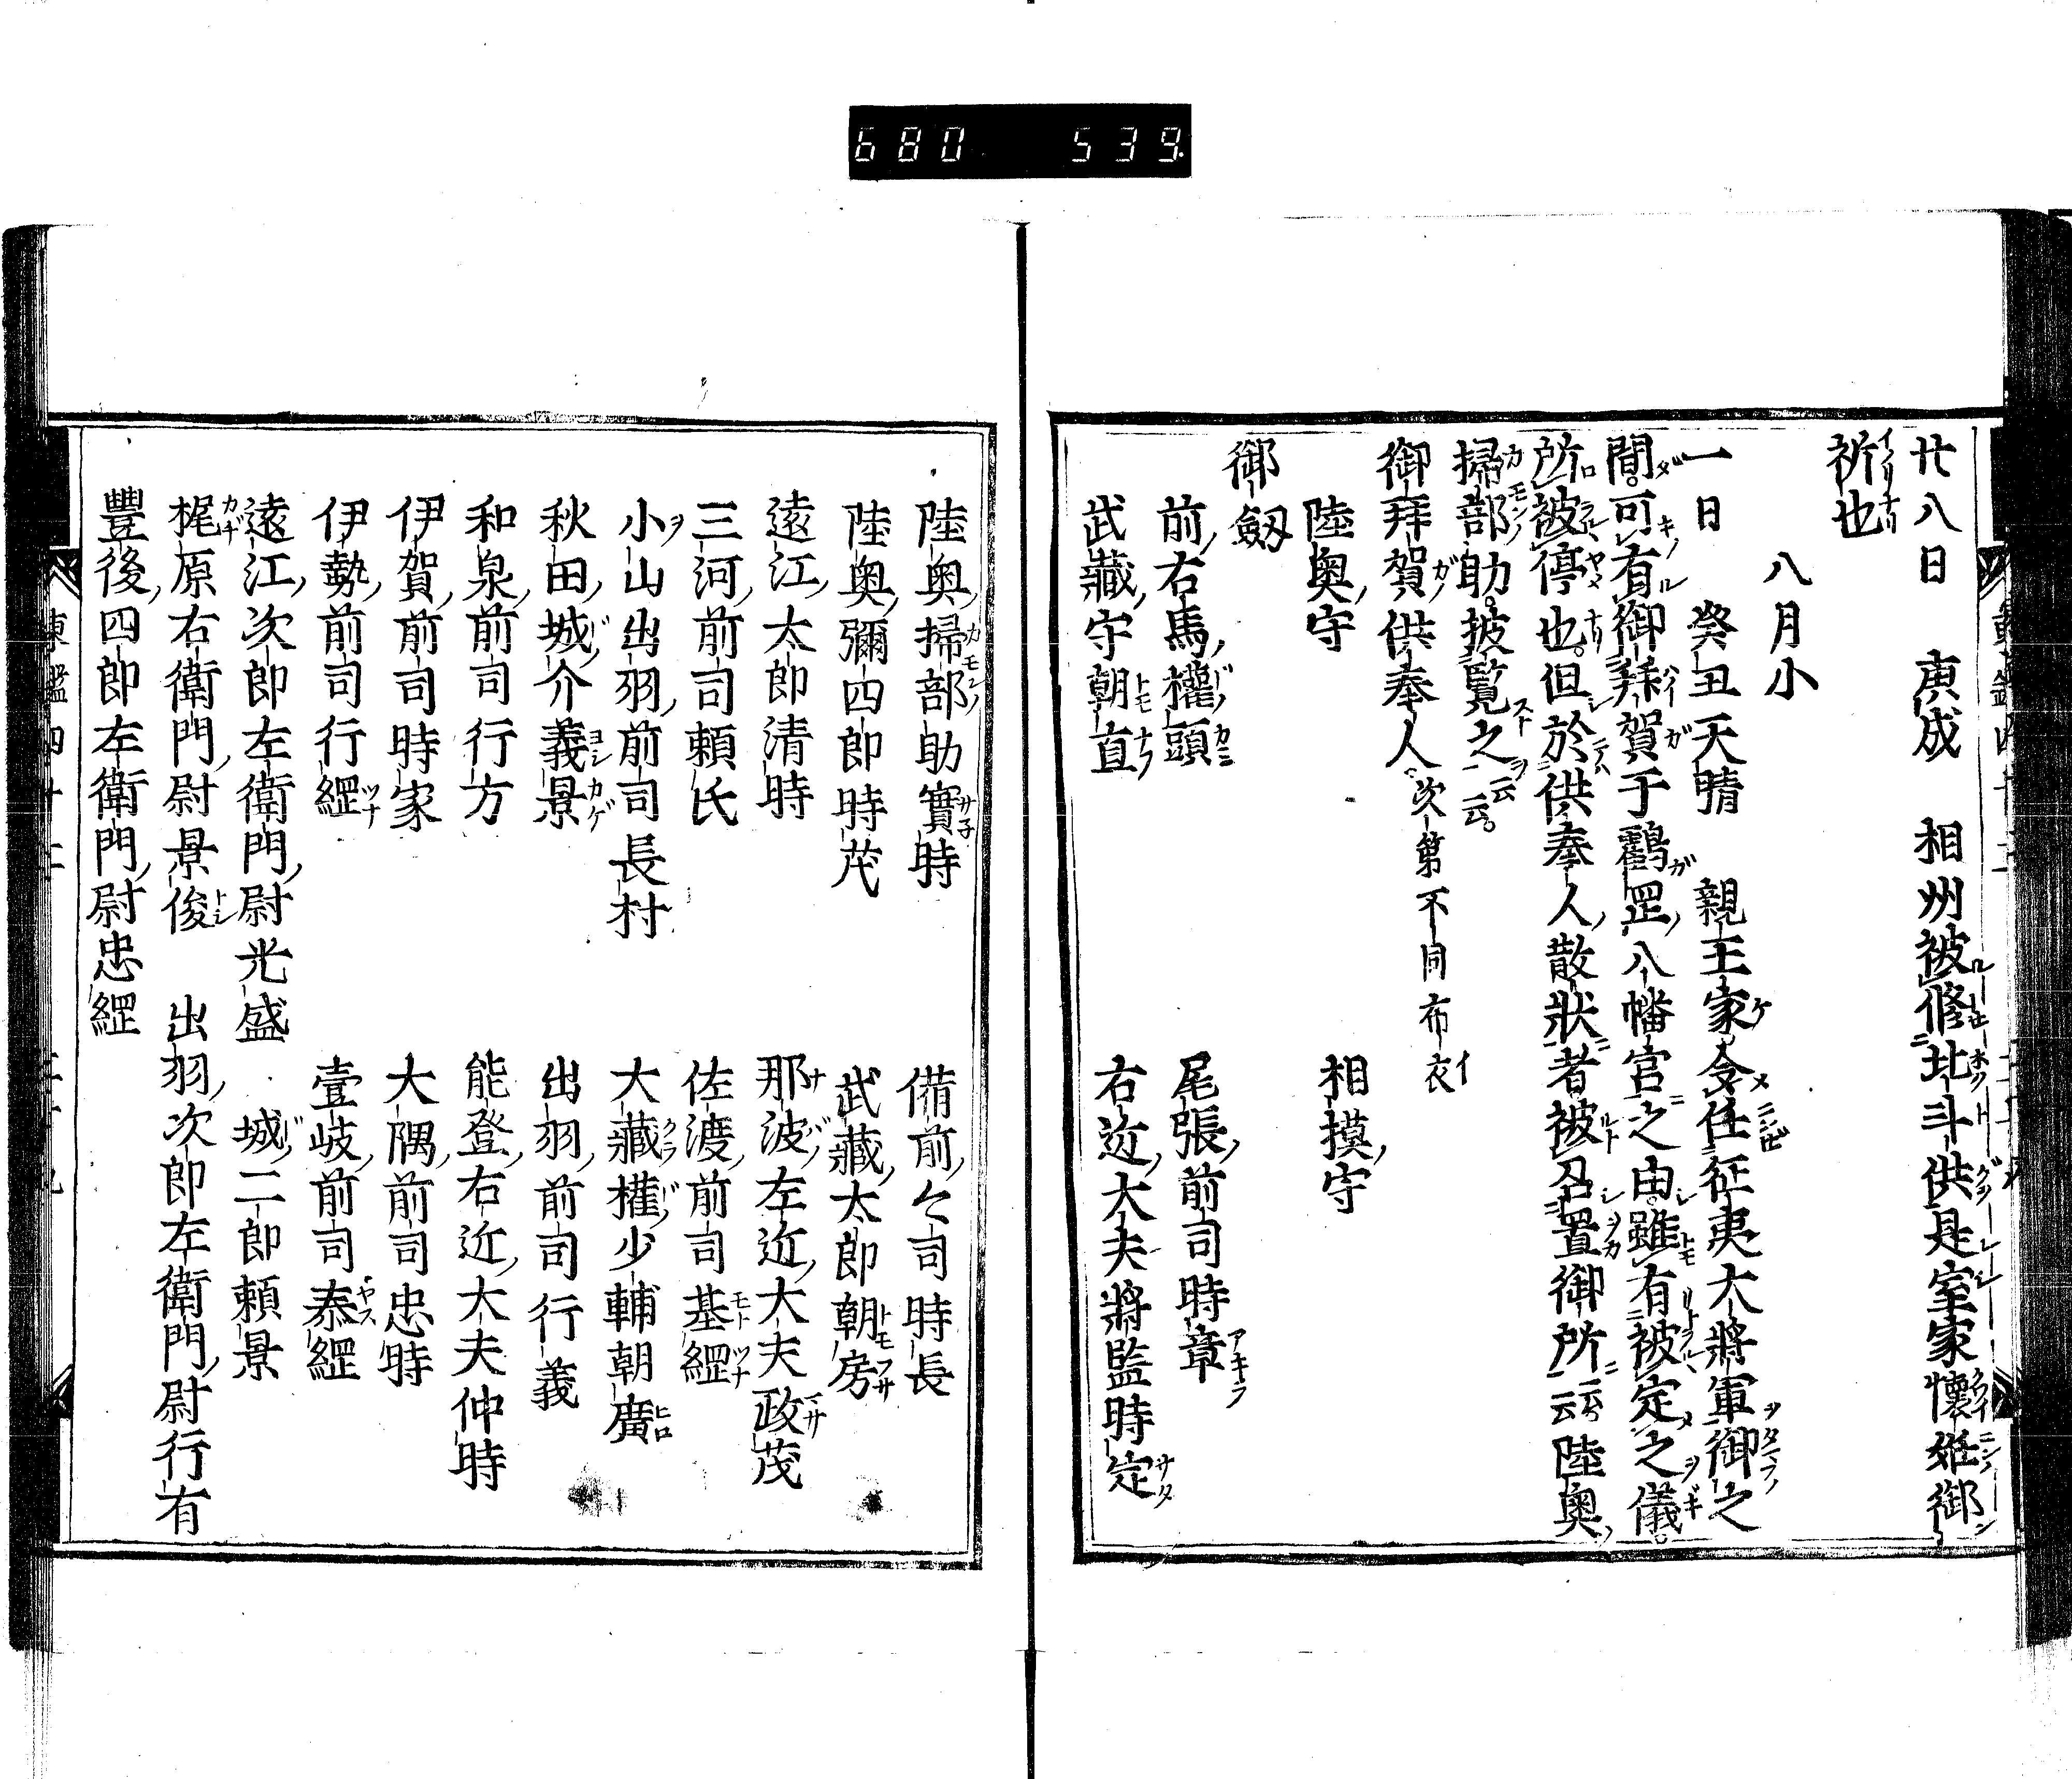 680 539
廿八日 庚戌 相州被修北斗供是室家懷姙御
祈也
八月小
一日 癸丑天晴 親王家令任征夷大將軍御之
間可有御拜賀于鸖罡八幡宮之由雖有被定之儀
所被停也但於供奉人散狀者被召置御所云云陸奥
掃部助披覧之云云
御拜賀供奉人 次第不同布衣
陸奥守 相摸守
御劔
前右馬權頭 尾張前司時章
武藏守朝直 右近大夫將監時定
陸奥掃部助實時 備前々司時長
陸奥彌四郎時茂 武藏太郎朝房
遠江太郎清時 那波左近大夫政茂
三河前司頼氏 佐渡前司基綱
小山出羽前司長村 大藏權少輔朝廣
秋田城介義景 出羽前司行義
和泉前司行方 能登右近大夫仲時
伊賀前司時家 大隅前司忠時
伊勢前司行綱 壹岐前司泰綱
遠江次郎左衛門尉光盛 城二郎頼景
梶原右衛門尉景俊 出羽次郎左衛門尉行有
豐後四郎左衛門尉忠綱